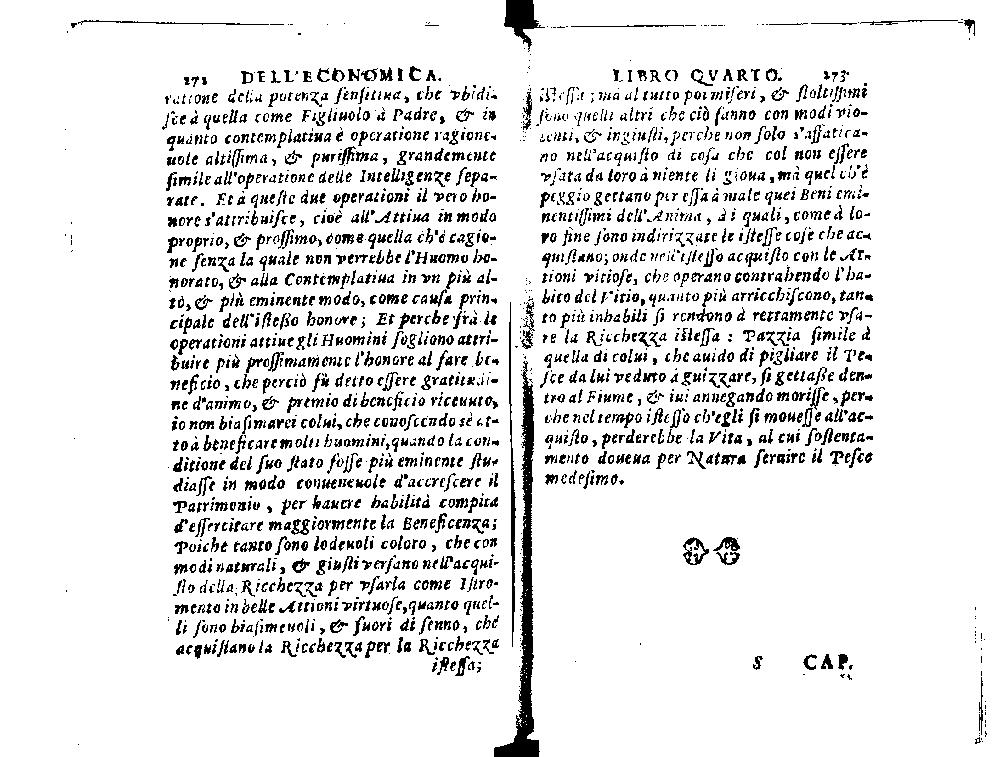 272 DELL'ECONOMICA.
ratione della potenza sensitiua, che vbidi-
sce à quella come Figliuolo à Padre, & in
quanto contemplatiua è operatione ragione-
uole altissima, & purissima, grandemente
simile all'operatione delle Intelligenze sepa-
rate. Et à queste due operationi il vero ho-
nore s'attribuisce, cioè all'Attiua in modo
proprio, & prossimo, come quella ch'è cagio-
ne senza la quale non verrebbe l'Huomo ho-
norato, & alla Contemplatiua in vn più al-
to, & più eminente modo, come causa prin-
cipale dell'istesso honore; Et perche frà le
operationi attiue gli Huomini sogliono attri-
buire più prossimamente l'honore al fare be-
neficio, che perciò fù detto essere gratitudi-
ne d'animo, & premio di beneficio riceuuto,
io non biasimarei colui, che conoscendo sè at-
to à beneficare molti huomini, quando la con-
ditione del suo stato fosse più eminente stu-
diasse in modo conueneuole d'accrescere il
Patrimonio, per hauere habilità compita
d'essercitare maggiormente la Beneficenza;
Poiche tanto sono lodeuoli coloro, che con
modi naturali, & giusti versano nell'acqui-
sto della Ricchezza per vsarla come Istro-
mento in belle Attioni virtuose, quanto quel-
li sono biasimeuoli, & fuori di senno, che
acquistano la Ricchezza per la Ricchezza
istessa;
LIBRO QVARTO. 273
istessa; mà al tutto poi miseri, & stoltissimi
sono quelli altri che ciò fanno con modi vio-
lenti, & ingiusti, perche non solo s'affatica-
no nell'acquisto di cosa che col non essere
vsata da loro à niente li gioua, mà quel ch'è
peggio gettano per essa à male quei Beni emi-
nentissimi dell'Anima, à i quali, come à lo-
ro fine sono indirizzate le istesse cose che ac-
quistano; onde nell'istesso acquisto con le At-
tioni vitiose, che operano contrahendo l'ha-
bito del Vitio, quanto più arricchiscono, tan-
to più inhabili si rendono à rettamente vsa-
re la Ricchezza istessa: Pazzia simile à
quella di colui, che auido di pigliare il Pe-
sce da lui veduto à guizzare, si gettasse den-
tro al Fiume, & iui annegando morisse, per-
che nel tempo istesso ch'egli si mouesse all'ac-
quisto, perderebbe la Vita, al cui sostenta-
mento doueua per Natura seruire il Pesce
medesimo.
S CAP.